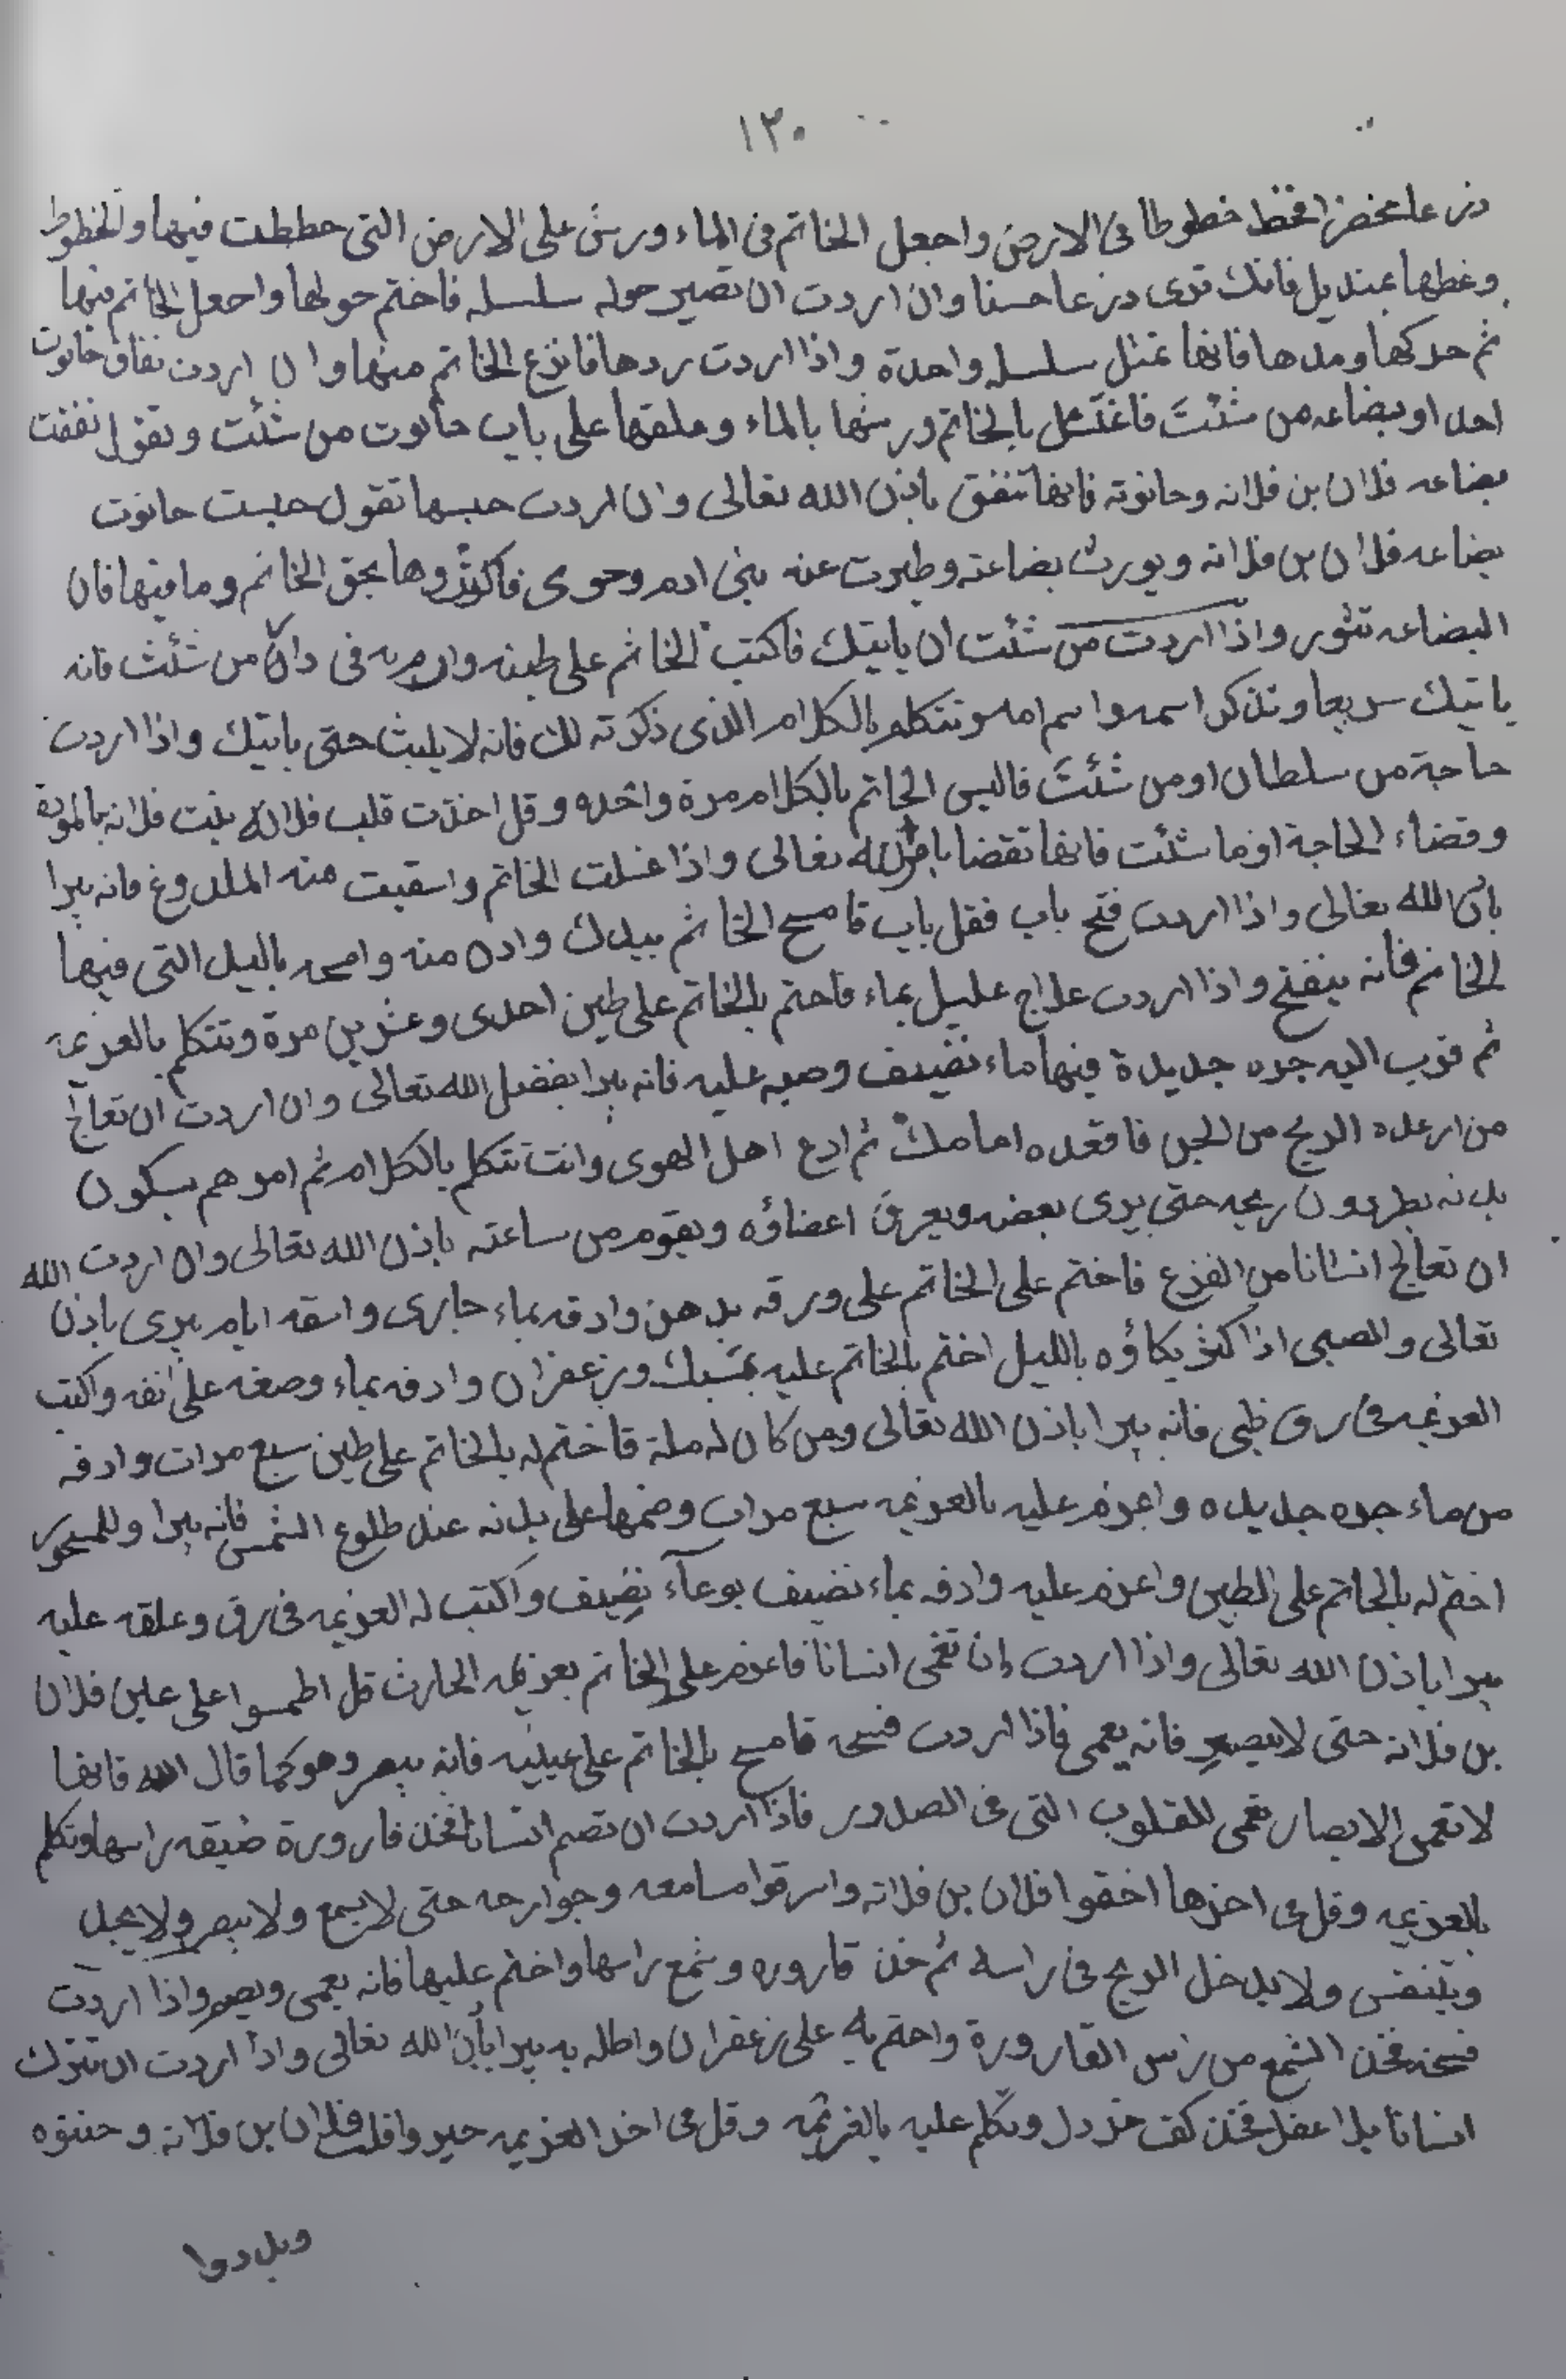 ١٢٠
زرعا مخضرا فخط خطوطا فى الارض واجعل الخاتم فى الماء ورش على الارض التى حططت فيها والخطوط
وغطها بمنديل فانك ترى زرعا حسنا وان اردت ان تصير حوله سلسله فاختم حولها واجعل الخاتم فيها
ثم حركها ومدها فانها تمثل سلسله واحدة واذا اردت ردها فانزع الخاتم منها وان اردت نفاق حانوت
احد او بضاعه من شئت فاغتسل بالخاتم ورشها بالماء وعلقها على باب حانوت من شئت وتقول نفقت
بضاعه فلان بن فلانه وحانوته فانها تنفق باذن الله تعالى وان اردت حبسها تقول حبست حانوت
بضاعه فلان بن فلانه ويورث بضاعته وطيرت عنه بنى ادم وحوى بحق الخاتم وما فيها فان
البضاعه تثور واذا اردت من شئت ان ياتيك فاكتب الخاتم على طينه وارم به فى دار من شئت فانه
ياتيك سريعا وتذكر اسمه واسم امه وتتكلم بالكلام الذى ذكرته لك فانه لا يلبث حتى ياتيك واذا اردت
حاجة من سلطان او من شئت فالبس الخاتم بالكلام مرة واحده وقل اخذت قلب فلان بنت فلانه بالمودة
وقضاء الحاجة او ما شئت فانها تقضا بامر الله تعالى واذا غسلت الخاتم واسقيت منه الملدوغ فانه يبرا
باذن الله تعالى واذا اردت فتح باب فقل باب قامسح الخاتم بيدك وادن منه وامسحه باليد التى فيها
الخاتم فانه ينفتح واذا اردت علاج عليل بماء فاختم بالخاتم على طين احدى وعشرين مرة وتتكلم بالعزيمه
ثم قرب اليه جره جديدة فيها ماء نضيف وصبه عليه فانه يبرا بفضل الله تعالى وان اردت ان تعالج
من ارعده الريح من الجن فاقعده امامك ثم ادع اهل الهوى وانت تتكلم بالكلام ثم امرهم يسكون
بدنه يطردون ريحه حتى يرى بعضه ويعرق اعضاؤه ويقوم من ساعته باذن الله تعالى وان اردت الله
ان تعالج انسانا من الفزع فاختم على الخاتم على ورقه بدهن وادفه بماء جارى واسقه ايام يبرى باذن
تعالى والصبى اذا كثر بكاؤه بالليل اختم بالخاتم عليه بمسك وزعفران وادفه بماء وصغه على انفه واكتب
العزيمه فى رق ظبى فانه يبرا باذن الله تعالى ومن كان له ملة فاختم له بالخاتم على طين سبع مرات وادفه
من ماء جره جديده واعزم عليه بالعزيمه سبع مرات وضمها على بدنه عند طلوع الشمس فانه يبرا وللمسحور
اختم له بالخاتم على الطين واعزم عليه وادفه بماء نضيف بوعآء نضيف واكتب له العزيمه فى رق وعلقه عليه
يبرا باذن الله تعالى واذا اردت ان تعمى انسانا فاعزم على الخاتم بعزيمه الحارث قل اطمسوا على عين فلان
بن فلانه حتى لا يبصر فانه يعمى فاذا اردت فسحه قامسح بالخاتم على عينيه فانه يبصر وهو كما قال الله فانها
لا تعمى الابصار تعمى للقلوب التى فى الصدور فاذا اردت ان تصم انسانا فخذ قارورة ضيقه راسها وتكلم
بالعزيمه وقل فى اخرها اخفوا فلان بن فلانه واسرقوا مسامعه وجوارحه حتى لا يسمع ولا يبصر ولا يجد
ويتنفس ولا يدخل الريح فى راسه ثم خذ قاروره وشمع راسها واختم عليها فانه يعمى ويصم واذا اردت
فسحه فخذ الشمع من راس القارورة واختم به على زعفران واطله به يبرا باذن الله تعالى واذا اردت ان تترك
انسانا بلا عقل فخذ كف خردل وتكلم عليه بالعزيمه وقل فى اخر العزيمه حيروا قلب فلان بن فلانه وحننوه
وبلدوا